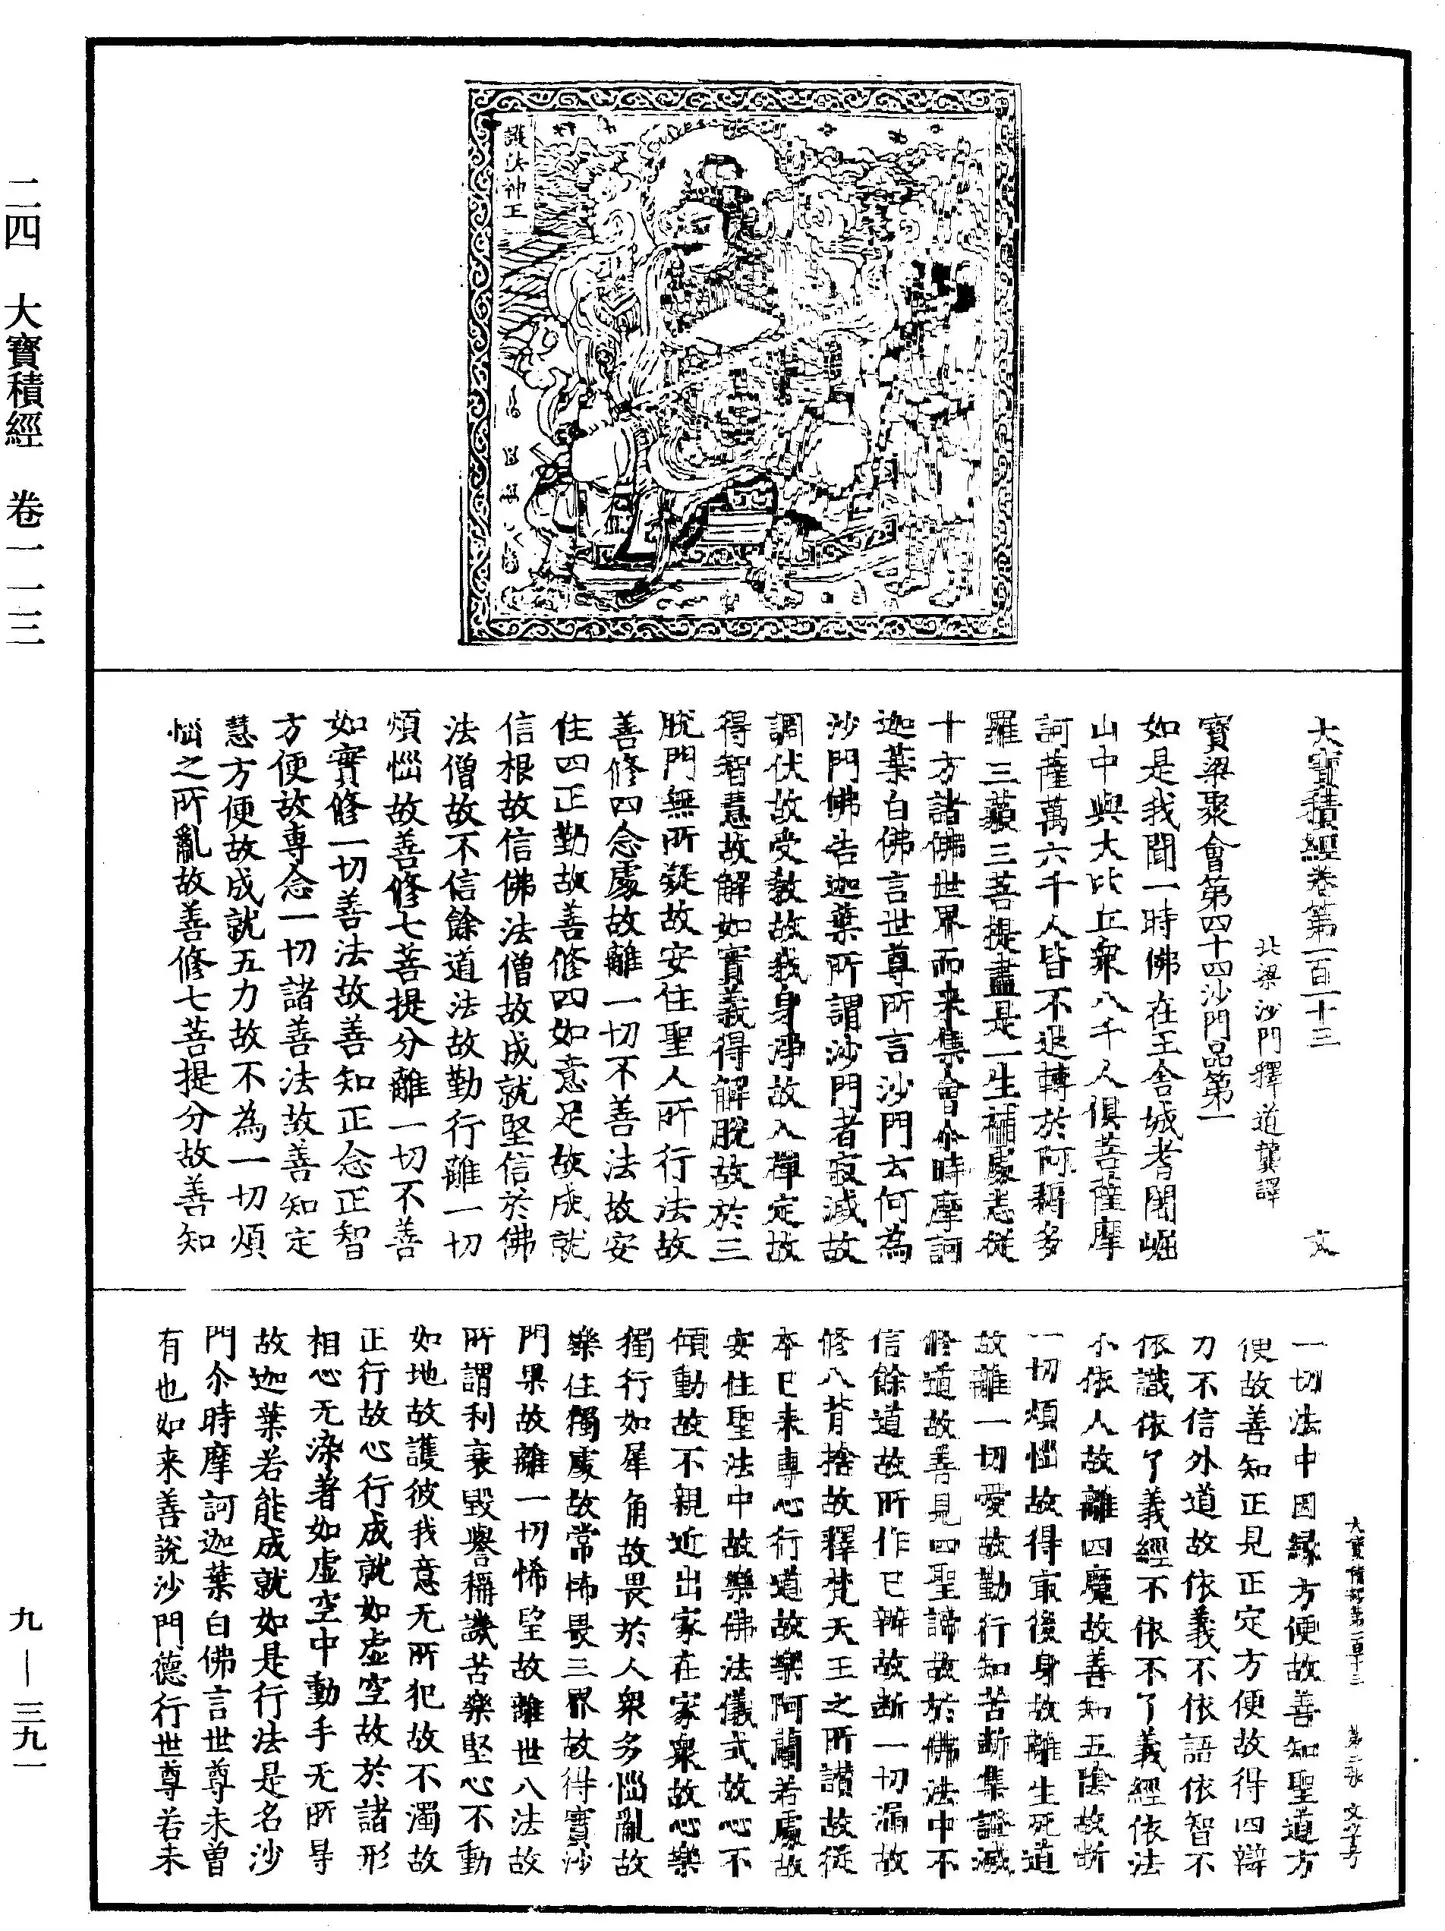 二四　大寶積經　卷一一三
九—三九一
護法神王
大寶積經卷第一百一十三　文
北梁沙門釋道龔譯
寶梁聚會第四十四沙門品第一
如是我聞一時佛在王舍城耆闍崛
山中與大比丘衆八千人俱菩薩摩
訶薩萬六千人皆不退轉於阿耨多
羅三藐三菩提盡是一生補處悉從
十方諸佛世界而来集會尒時摩訶
迦葉白佛言世尊所言沙門云何為
沙門佛告迦葉所謂沙門者寂滅故
調伏故受教故戒身淨故入禪定故
得智慧故解如實義得解脫故於三
脫門無所疑故安住聖人所行法故
善修四念處故離一切不善法故安
住四正勤故善修四如意足故成就
信根故信佛法僧故成就堅信於佛
法僧故不信餘道法故勤行離一切
煩惱故善修七菩提分離一切不善
如實修一切善法故善知正念正智
方便故專念一切諸善法故善知定
慧方便故成就五力故不為一切煩
惱之所亂故善修七菩提分故善知
一切法中因緣方便故善知聖道方
便故善知正見正定方便故得四辯
力不信外道故依義不依語依智不
依識依了義經不依不了義經依法
不依人故離四魔故善知五陰故斷
一切煩惱故得㝡後身故離生死道
故離一切愛故勤行知苦斷集證滅
修道故善見四聖諦故於佛法中不
信餘道故所作已辦故斷一切漏故
修八背捨故釋梵天王之所讃故從
本已来專心行道故樂阿蘭若處故
安住聖法中故樂佛法儀式故心不
傾動故不親近出家在家衆故心樂
獨行如犀角故畏於人衆多惱亂故
樂住獨處故常怖畏三界故得實沙
門果故離一切悕望故離世八法故
所謂利衰毀譽稱譏苦樂堅心不動
如地故護彼我意无所犯故不濁故
正行故心行成就如虛空故於諸形
相心无染著如虛空中動手无所㝵
故迦葉若能成就如是行法是名沙
門尒時摩訶迦葉白佛言世尊未曾
有也如来善說沙門德行世尊若未
大寶積經第一百十三　第二張　文字号